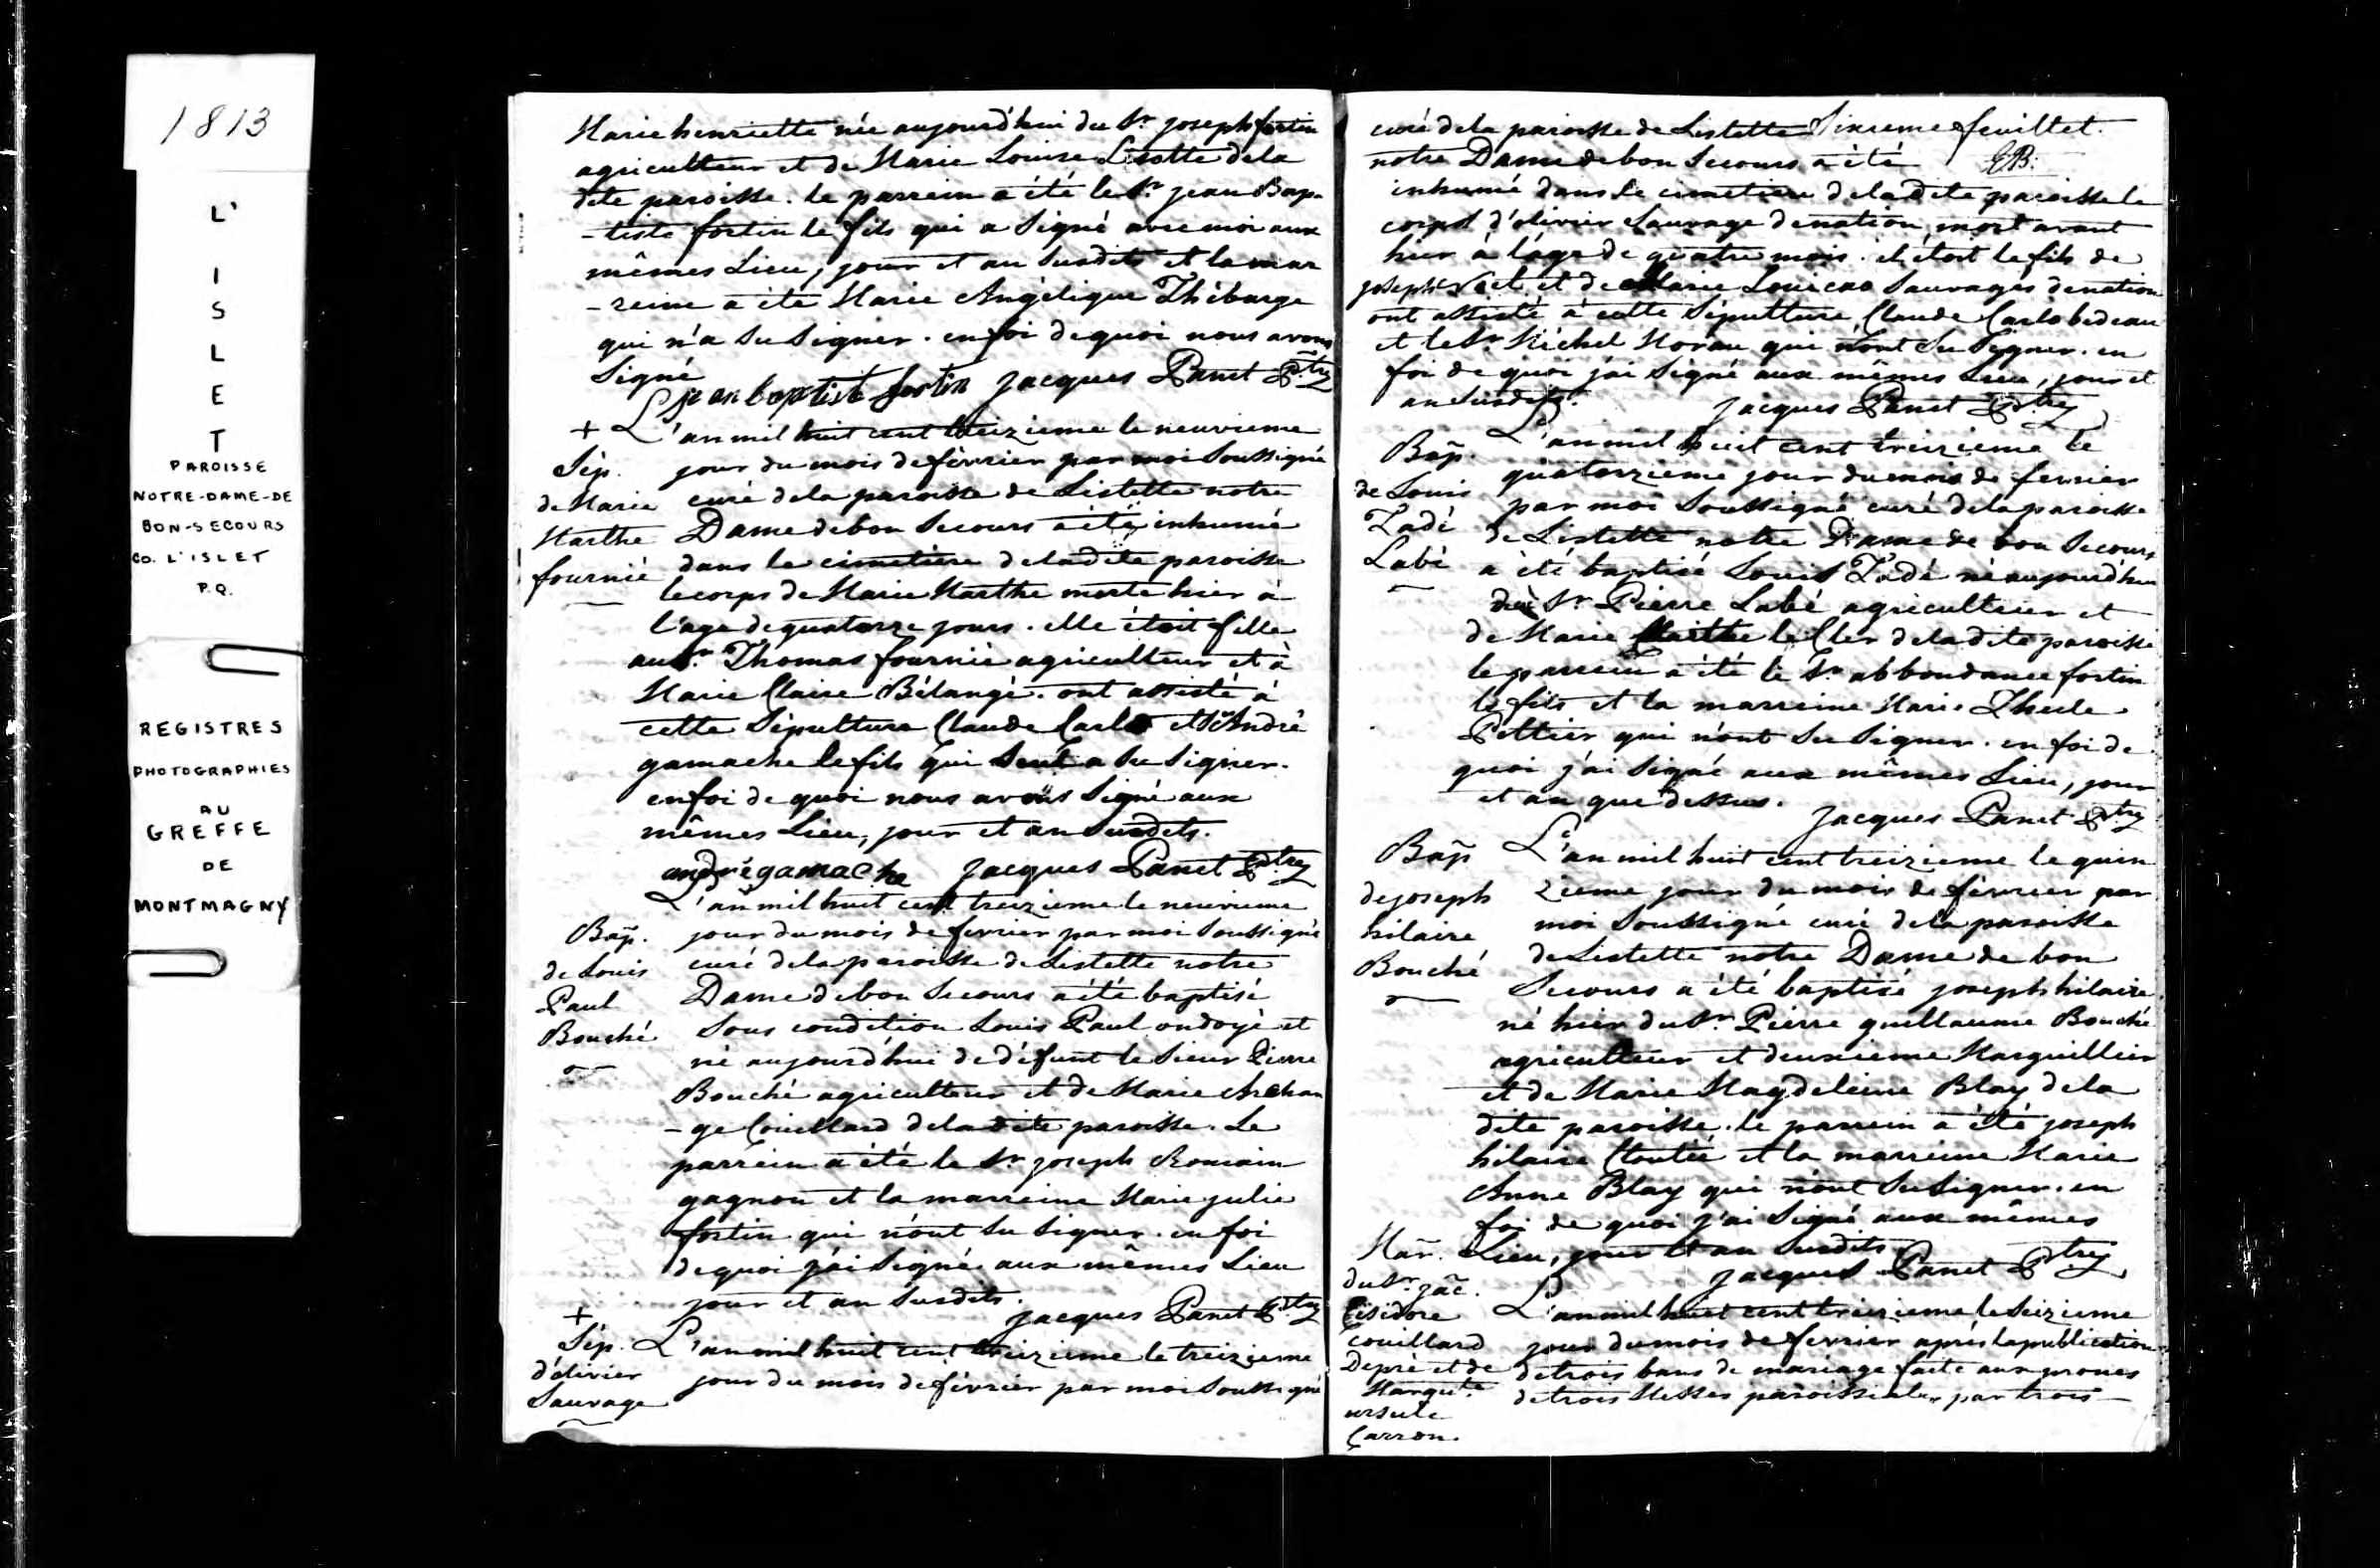 1813
L'
I
S
L
E
T
PAROISSE
NOTRE-DAME-DE
BON-SECOURS
CO. L'ISLET
P.Q.
REGISTRES
PHOTOGRAPHIES
AU
GREFFE
DE
MONTMAGNY
Marie henriette née aujourd'hui du Sr. joseph fortin
agriculteur et de Marie Louise Lisotte de la
dite paroisse. le parrein a été le Sr. jean Bap-
-tiste fortin le fils qui a Signé avec moi aux
mêmes Lieu, jour et an Susdits et la mar
-reine a été Marie Angélique Thibarge
qui n'a Su Signer. en foi de quoi nous avons
Signé
jean baptist fortin jacques Panet Ptre
+ L'an mil huit cent treizieme le neuvieme
Sép. jour du mois de février par moi Soussigné
de Marie curé de la paroisse de Lislette notre
Marthe Dame de bon Secours a été inhumé
fournié dans le cimetière de la dite paroisse
le corps de Marie Marthe morte hier à
l'age de quatorze jours. elle étoit fille
au Sr. Thomas fournié agriculteur et à
Marie Claire Bélangé. ont assisté à
cette Sépulture Claude Carlo et Sr André
gamache le fils qui Seul a Su Signer.
en foi de quoi nous avons Signé aux
mêmes Lieu, jour et an Susdits.
andré gamache jacques Panet Ptre
L'an mil huit cent treizieme le neuvieme
Bap. jour du mois de fevrier par moi Soussigné
de Louis curé de la paroisse de Lislette notre
Paul Dame de bon Secours a été baptisé
Bouché Sous condition Louis Paul ondoyé et
né aujourd'hui de défunt le Sieur Pierre
Bouché agriculteur et de Marie Archan
-ge Couillard de la dite paroisse. Le
parrein a été le Sr. joseph Romain
gagnon et la marreine Marie julie
fortin qui n'ont Su Signer. en foi
de quoi j'ai Signé aux mêmes Lieu
jour et an Susdits.
+ jacques Panet Ptre
Sép. L'an mil huit cent treizieme le treizieme
d'olivier jour du mois de février par moi Soussigné
Sauvage
curé de la paroisse de Lislette Sixieme feuillet.
notre Dame de bon Secours a été EB.
inhumé dans le cimetiere de la dite paroisse le
corps d'olivier Sauvage de nation mort avant
hier à l'âge de quatre mois. il étoit le fils de
joseph et de Marie Sauvages de nation
ont assisté à cette Sépulture Claude Carlo bedeau
et le Sr. Michel Morau qui n'ont Su Signer. en
foi de quoi j'ai Signé aux mêmes Lieu, jour et
an Susdits. jacques Panet Ptre
L'an mil huit cent treizieme le
Bap. quatorzieme jour du mois de fevrier
de Louis par moi Soussigné curé de la paroisse
Zadé de Lislette notre Dame de bon Secours
Labé a été baptisé Louis Zadé né aujourd'hui
du Sr. Pierre Labé agriculteur et
de Marie Marthe le Cler de la dite paroisse
le parrein a été le Sr. abbondance fortin
le fils et la marreine Marie Thecle
Peltier qui n'ont Su Signer. en foi de
quoi j'ai Signé aux mêmes Lieu, jour
et an que dessus.
jacques Panet Ptre
Bap L'an mil huit cent treizieme le quin
de joseph zieme jour du mois de février par
hilaire moi Soussigné curé de la paroisse
Bouché de Lislette notre Dame de bon
Secours a été baptisé joseph hilaire
né hier du Sr. Pierre guillaume Bouché
agriculteur et deuxieme Marguillier
et de Marie Magdeleine Blay de la
dite paroisse. le parrein a été joseph
hilaire Cloutié et la marreine Marie
Anne Blay qui n'ont Su Signer. en
foi de quoi j'ai Signé aux mêmes
Mar. Lieu, jour et an Susdits
du Sr. jac. jacques Panet Ptre
isidore L'an mil huit cent treizieme le Seizieme
Couillard jour du mois de fevrier après la publication
Depré et de de trois bans de mariage faite aux prones
Margte de trois Messes paroissiales par trois
ursule
Carron.